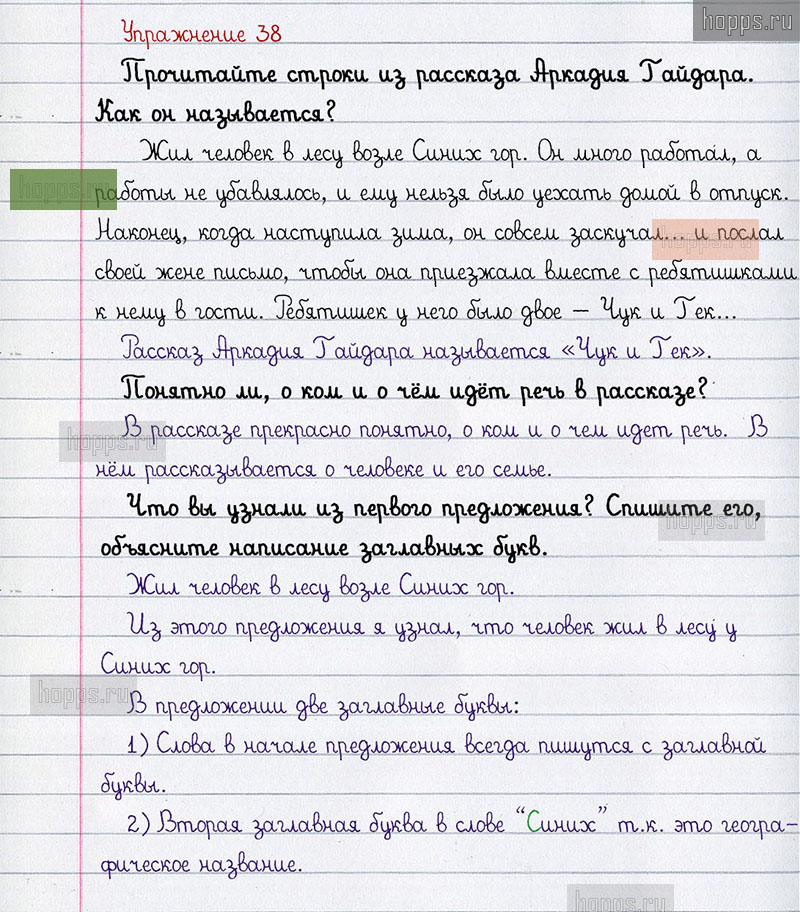 hopps.ru
Упражнение 38
Прочитайте строки из рассказа Аркадия Гайдара.
Как он называется?
Жил человек в лесу возле Синих гор. Он много работал, а
hopps.ru
работы не убавлялось, и ему нельзя было уехать домой в отпуск.
Наконец, когда наступила зима, он совсем заскучал... и послал
hopps.ru
своей жене письмо, чтобы она приезжала вместе с ребятишками
к нему в гости. Ребятишек у него было двое – Чук и Гек...
Рассказ Аркадия Гайдара называется «Чук и Гек».
Понятно ли, о ком и о чём идёт речь в рассказе?
В рассказе прекрасно понятно, о ком и о чем идет речь. В
hopps.ru
нём рассказывается о человеке и его семье.
Что вы узнали из первого предложения? Спишите его,
hopps.ru
объясните написание заглавных букв.
Жил человек в лесу возле Синих гор.
Из этого предложения я узнал, что человек жил в лесу у
Синих гор.
hopps.ru
В предложении две заглавные буквы:
1) Слова в начале предложения всегда пишутся с заглавной
буквы.
2) Вторая заглавная буква в слове "Синих" т.к. это геогра-
фическое название.
hopps.ru